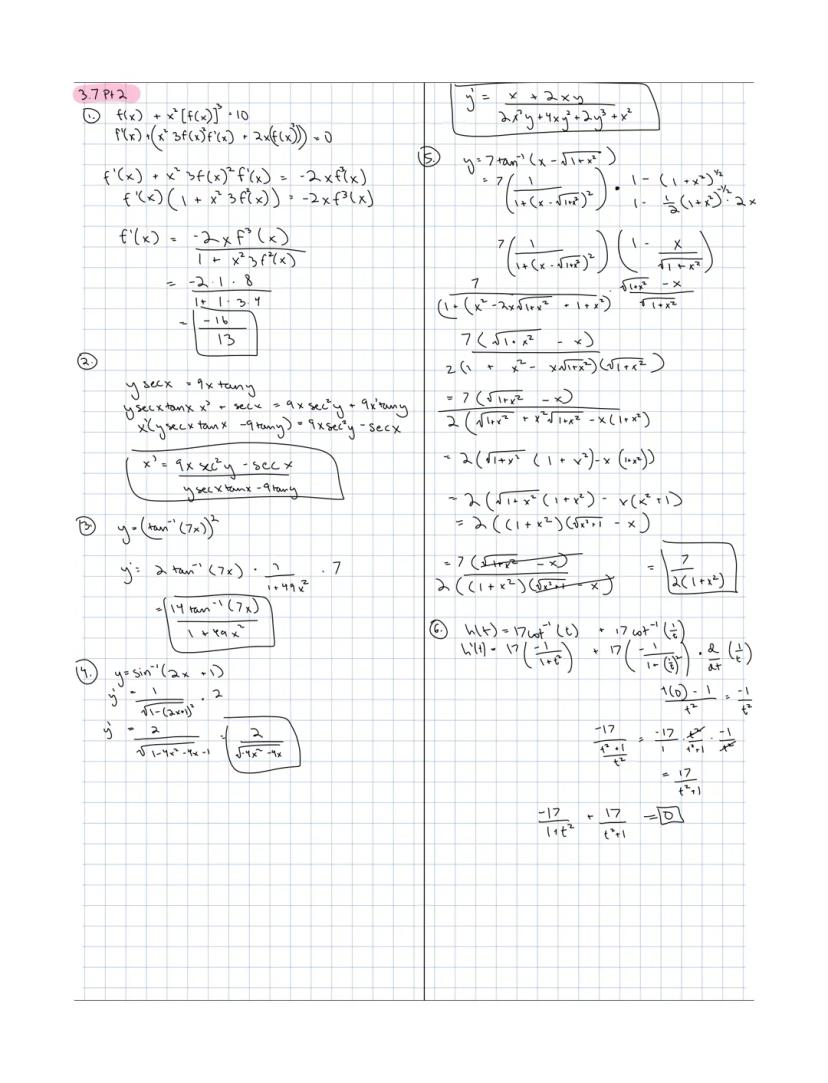 3.7 Pt 2
1. f(x) + x² [f(x)]³ = 10
f'(x) + (x² 3f(x)² f'(x) + 2x(f(x)³)) = 0
f'(x) + x² 3f(x)² f'(x) = -2x f³(x)
f'(x) (1 + x² 3f²(x)) = -2x f³(x)
f'(x) = -2x f³(x) / 1 + x² 3f²(x)
= -2·1·8 / 1+1·3·4
= -16 / 13
2.
y secx = 9x tany
y secx tanx x' + secx = 9x sec²y + 9x' tany
x'(y secx tanx - 9tany) = 9x sec²y - secx
x' = 9x sec²y - secx / y secx tanx - 9tany
3. y = (tan⁻¹(7x))²
y' = 2 tan⁻¹(7x) · 1 / 1+49x² · 7
= 14 tan⁻¹(7x) / 1 + 49x²
4. y = sin⁻¹(2x + 1)
y' = 1 / √1-(2x+1)² · 2
y' = 2 / √1-4x²-4x-1 = 2 / √-4x²-4x
y' = x + 2xy / 2x³y + 4xy² + 2y³ + x²
5. y = 7 tan⁻¹(x - √1+x²)
= 7 (1 / 1+(x-√1+x²)²) · 1 - (1+x²)^½
1 - ½(1+x²)^-½ · 2x
7 (1 / 1+(x-√1+x²)²) (1 - x / √1+x²)
7 / (1 + (x² - 2x√1+x² + 1+x²) · √1+x² - x / √1+x²
7(√1+x² - x) / 2(1 + x² - x√1+x²)(√1+x²)
= 7(√1+x² - x) / 2(√1+x² + x²√1+x² - x(1+x²)
= 2(√1+x² (1+x²) - x(1+x²))
= 2(√1+x² (1+x²) - x(x²+1)
= 2((1+x²)(√x²+1 - x)
= 7(√1+x² - x) / 2((1+x²)(√x²+1 - x) = 7 / 2(1+x²)
6. h(t) = 17cot⁻¹(t) + 17cot⁻¹(1/t)
h'(t) = 17(-1 / 1+t²) + 17(-1 / 1+(1/t)²) · d/dt (1/t)
t(0) - 1 / t² = -1 / t²
-17 / t²+1 / t² = -17 / 1 · t² / t²+1 · -1 / t²
= 17 / t²+1
-17 / 1+t² + 17 / t²+1 = 0